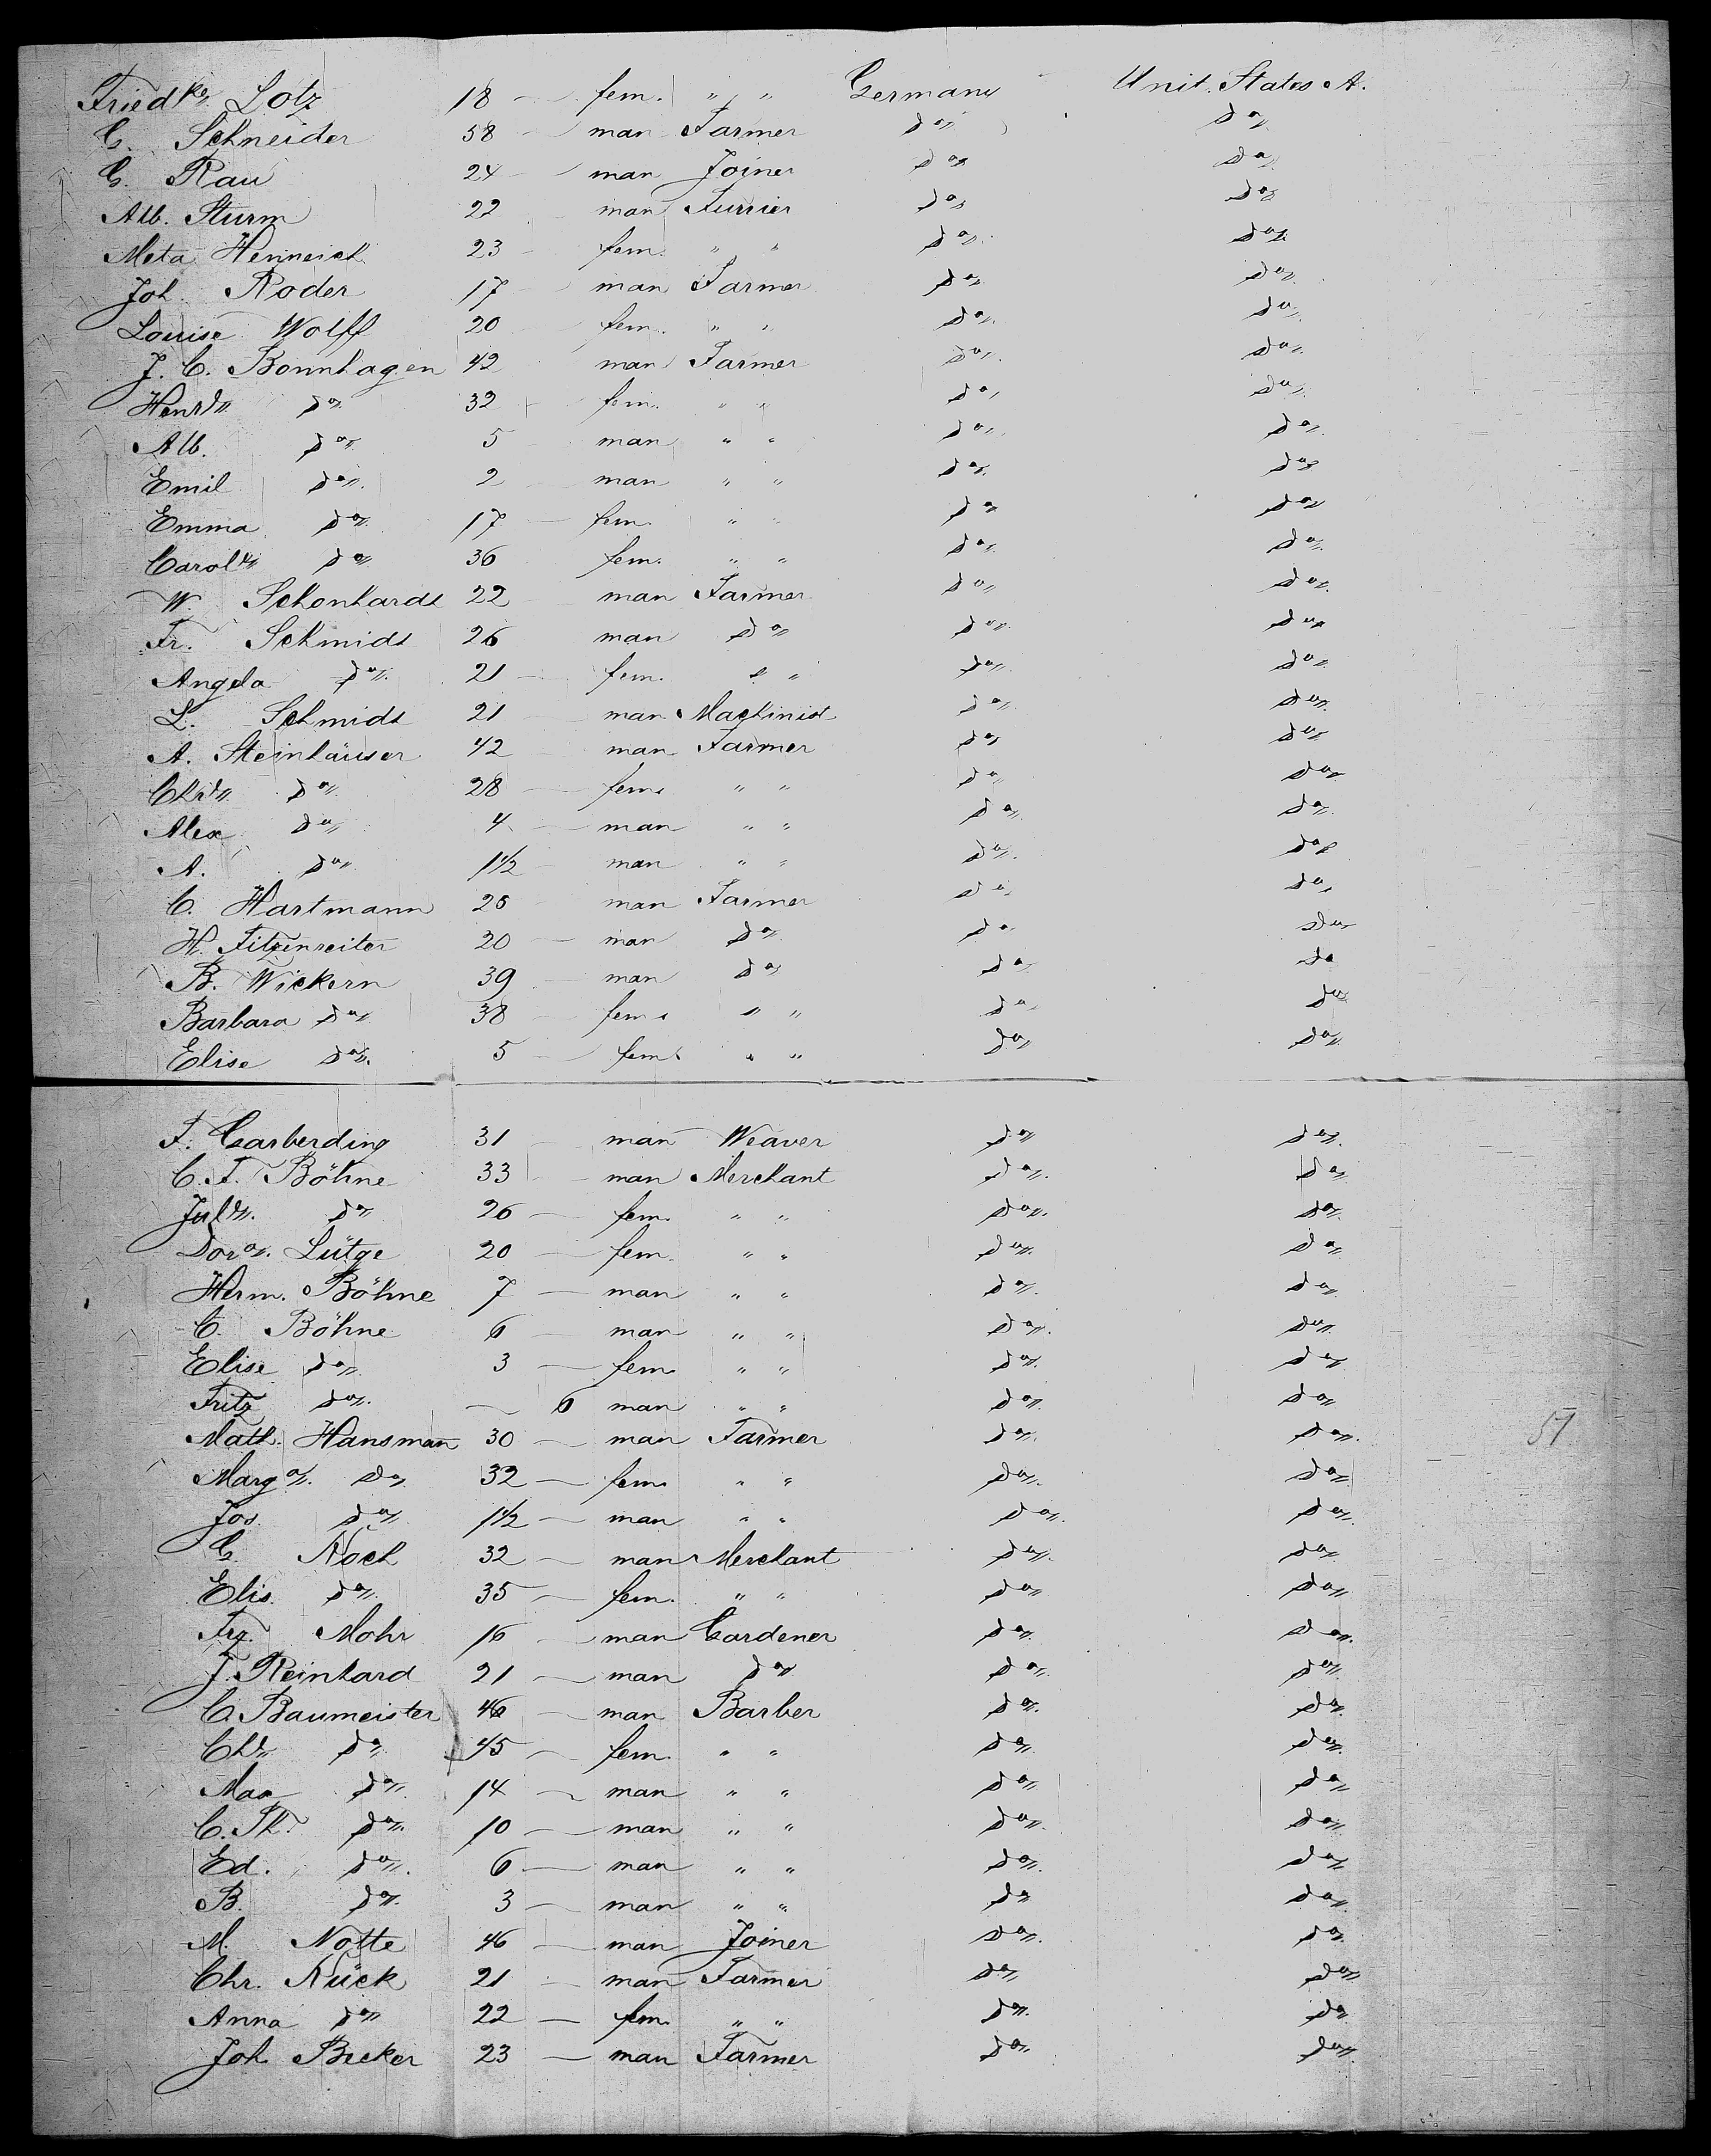 Friedke Lotz 18 — fem. " " Germany Unit. States A.
C. Schneider 58 — man Farmer do do
G. Rau 24 — man Joiner do do
Alb. Sturm 22 man Furrier do do
Meta Henneich 23 — fem. " " do do
Joh. Roder 17 — man Farmer do do
Louise Wolff 20 fem. " " do do
J. C. Bonnhagen 42 man Farmer do do
Henrte do 32 fem. " " do do
Alb. do 5 man " " do do
Emil do 2 man " " do do
Emma do 17 — fem. " " do do
Carolne do 36 fem. " " do do
W. Schonhardt 22 man Farmer do do
Fr. Schmidt 26 man do do do
Angela do 21 — fem. " " do do
L. Schmidt 21 man Machinist do do
A. Steinhäuser 42 man Farmer do do
Chrte do 28 — fem. " " do do
Alex do 4 — man " " do do
A. do 1 1/2 — man " " do do
C. Hartmann man Farmer do do
H. Fitzenreiter 20 — man do do do
B. Wickern 39 — man do do do
Barbara do 38 — fem. " " do do
Elise do 5 — fem. " " do do
F. Garberding 31 — man Weaver do do
C. F. Böhne 33 — man Merchant do do
Julie do 26 — fem. " " do do
Dora. Lütge 20 — fem. " " do do
Herm. Böhne 7 — man " " do do
C. Böhne 6 — man " " do do
Elise do 3 — fem " " do do
Fritz do — 6 man " " do do
Math. Hansman 30 — man Farmer do do
57
Marga. do 32 — fem " " do do
Jos. do 1 1/2 — man " " do do
G. Koch 32 — man Merchant do do
Elis. do 35 — fem. " " do do
Frz. Mohr 16 — man Gardener do do
J. Reinhard 21 — man do do do
C. Baumeister 46 — man Barber do do
Chte do 45 — fem. " " do do
Max do 14 — man " " do do
C. Th. do 10 — man " " do do
Ed. do 6 — man " " do do
B. do 3 — man " " do do
M. Notte 46 — man Joiner do do
Chr. Kück 21 — man Farmer do do
Anna do 22 — fem. " " do do
Joh Becker 23 — man Farmer do do